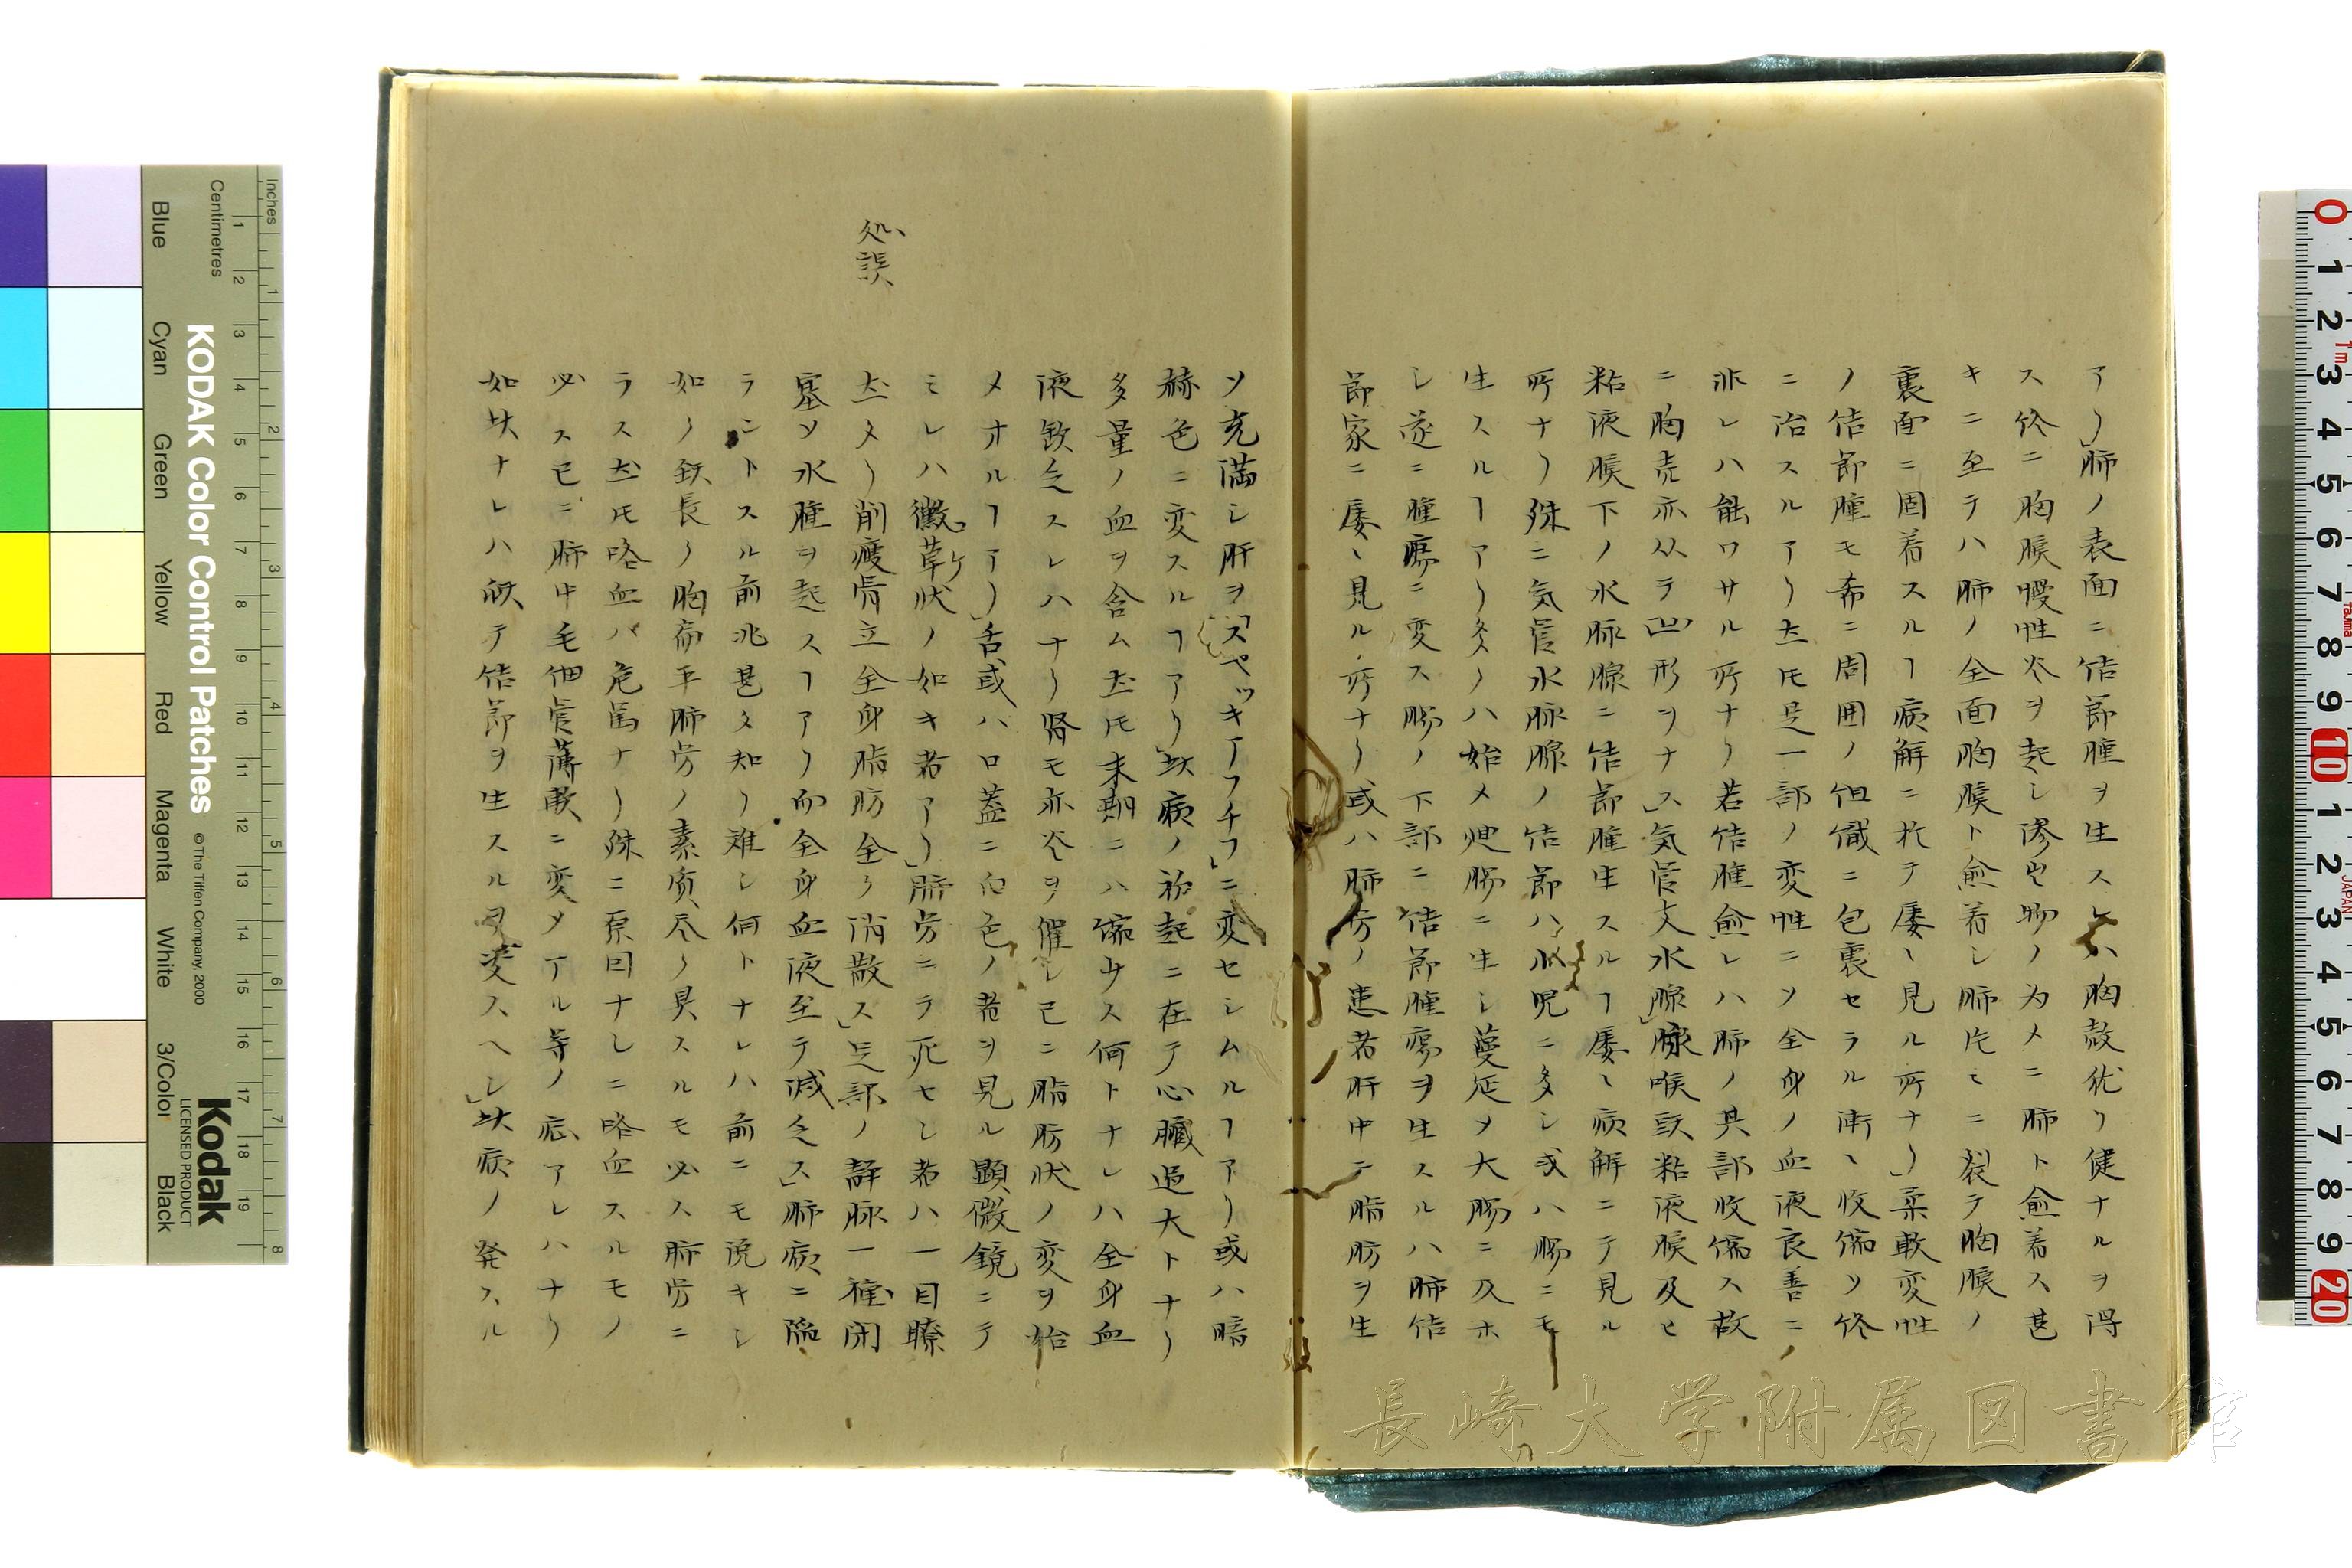 アリ」肺ノ表面ニ結節腫ヲ生スレハ胸殻犹リ健ナルヲ得
ス終ニ胸膜慢性炎ヲ起シ滲出物ノ为メニ肺ト愈着ス甚
キニ至テハ肺ノ全面胸膜ト愈着シ肺片々ニ裂テ胸膜ノ
裏面ニ固着スルヿ病解ニ於テ屡〻見ル所ナリ」柔軟変性
ノ結節腫モ希ニ周囲ノ組織ニ包裹セラル漸〻收縮ソ終
ニ治スルアリ𪜈是一部ノ変性ニソ全身ノ血液良善ニ
非レハ能ワサル所ナリ若結腫愈レハ肺ノ其部收縮ス故
ニ胸壳亦从テ凹形ヲナス」気管支水腺」脉喉頭粘液膜及ヒ
粘液膜下ノ水脉腺ニ结節腫生スルヿ屡〻病解ニテ見ル
所ナリ殊ニ気管水脉腺ノ结節ハ小児ニ多シ或ハ腸ニモ
生スルヿアリ多クハ始メ廻腸ニ生シ蔓延ソ大腸ニ及ホ
シ遂ニ腫瘍ニ変ス腸ノ下部ニ结節腫瘍ヲ生スルハ肺结
節家ニ屡〻見ル所ナリ或ハ肺労ノ患者肝中ニ脂肪ヲ生
ソ充満シ肝ヲ「スペッキアフチフ」ニ変セシムルヿアリ或ハ暗
赫色ニ変スルヿアリ」此病ノ初起ニ在テ心臓過大トナリ
多量ノ血ヲ含ム𪜈末期ニハ縮少ス何トナレハ全身血
液欽乏スレハナリ腎モ亦炎ヲ催シ已ニ脂肪状ノ変ヲ始
メオルヿアリ」舌或ハ口蓋ニ白色ノ者ヲ見ル顕微鏡ニテ
ミレハ黴草状ノ如キ者アリ」肺労ニテ死セシ者ハ一目瞭
𪜈タリ削痩骨立全身脂肪全ク消散ス」足部ノ静脉一種閉
処誤
塞ソ水腫ヲ起スヿアリ而全身血液至テ減乏ス」肺病ニ陥
ラントスル前兆甚タ知リ難シ何トナレハ前ニモ说キシ
如ク頚長ク胸扁平肺労ノ素质尽ク具スルモ必ス肺労ニ
ラス𪜈モ咯血ハ危篤ナリ殊ニ原因ナシニ咯血スルモノ
必ス已ニ肺中毛細管薄軟ニ変ソアル等ノ症アレハナリ
如此ナレハ続テ结節ヲ生スルヲ憂スヘシ」此病ノ発スル
長崎大学附属図書館